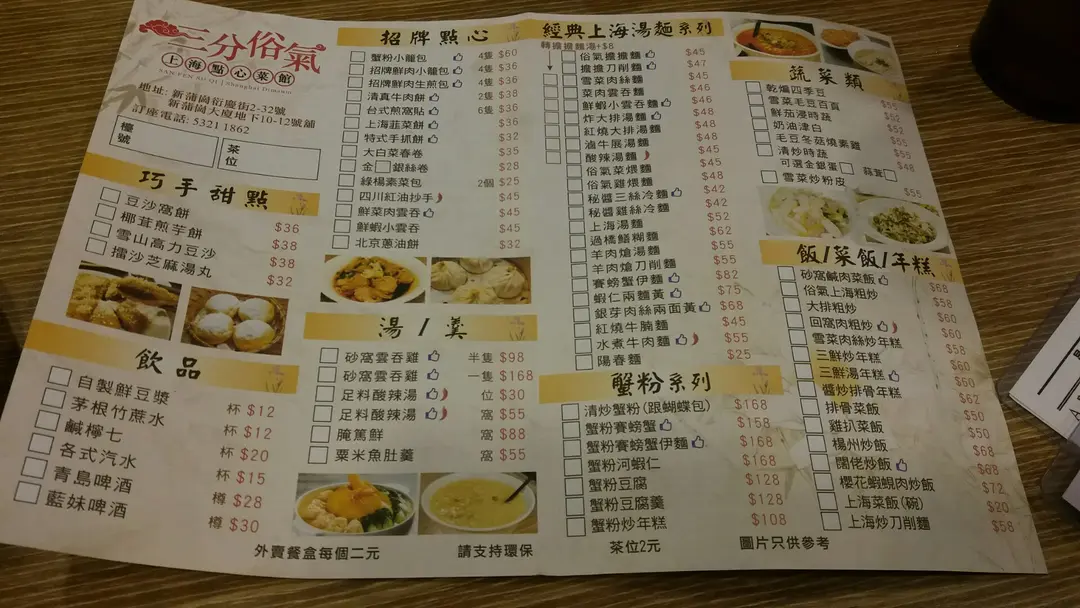 三分俗氣
上海點心菜館
SAN FEN SU QI | Shanghai Dimsum
地址: 新蒲崗衍慶街2-32號
新蒲崗大廈地下10-12號舖
訂座電話: 5321 1862
檯號
茶位
巧手甜點
豆沙窩餅 $36
椰茸煎芋餅 $38
雪山高力豆沙 $38
擂沙芝麻湯丸 $32
飲品
自製鮮豆漿 杯 $12
茅根竹蔗水 杯 $12
鹹檸七 杯 $20
各式汽水 $15
青島啤酒 樽 $28
藍妹啤酒 樽 $30
招牌點心
蟹粉小籠包 4隻 $60
招牌鮮肉小籠包 4隻 $36
招牌鮮肉生煎包 4隻 $36
清真牛肉餅 2隻 $38
台式煎窩貼 6隻 $36
上海韮菜餅 $36
特式手抓餅 $32
大白菜春卷 $35
金 銀絲卷 $28
綠楊素菜包 2個 $25
四川紅油抄手 $45
鮮菜肉雲吞 $45
鮮蝦小雲吞 $45
北京蔥油餅 $32
湯/羹
砂窩雲吞雞 半隻 $98
砂窩雲吞雞 一隻 $168
足料酸辣湯 位 $30
足料酸辣湯 窩 $55
腌篤鮮 窩 $88
粟米魚肚羹 窩 $55
經典上海湯麵系列
轉擔擔麵湯+$8
俗氣擔擔麵 $45
擔擔刀削麵 $47
雪菜肉絲麵 $45
菜肉雲吞麵 $46
鮮蝦小雲吞麵 $46
炸大排湯麵 $48
紅燒大排湯麵 $48
滷牛展湯麵 $48
酸辣湯麵 $45
俗氣菜煨麵 $45
俗氣雞煨麵 $48
秘醬三絲冷麵 $42
秘醬雞絲冷麵 $42
上海湯麵 $52
過橋鱔糊麵 $62
羊肉熗湯麵 $55
羊肉熗刀削麵 $55
賽螃蟹伊麵 $82
蝦仁兩麵黃 $75
銀芽肉絲兩面黃 $68
紅燒牛腩麵 $45
水煮牛肉麵 $55
陽春麵 $25
蟹粉系列
清炒蟹粉(跟蝴蝶包) $168
蟹粉賽螃蟹 $158
蟹粉賽螃蟹伊麵 $168
蟹粉河蝦仁 $168
蟹粉豆腐 $128
蟹粉豆腐羹 $128
蟹粉炒年糕 $108
蔬菜類
乾煸四季豆
雪菜毛豆百頁 $55
鮮茄浸時蔬 $55
奶油津白 $52
毛豆冬菇燒素雞 $55
清炒時蔬 $48
可選金銀蛋 蒜茸
雪菜炒粉皮 $55
飯/菜飯/年糕
砂窩鹹肉菜飯 $68
俗氣上海粗炒 $58
大排粗炒 $60
回窩肉粗炒 $60
雪菜肉絲炒年糕 $58
三鮮炒年糕 $60
三鮮湯年糕 $60
醬炒排骨年糕 $62
排骨菜飯 $50
雞扒菜飯 $50
楊州炒飯 $68
闊佬炒飯 $68
櫻花蝦蜆肉炒飯 $72
上海菜飯(碗) $20
上海炒刀削麵 $58
外賣餐盒每個二元
請支持環保
茶位2元
圖片只供參考